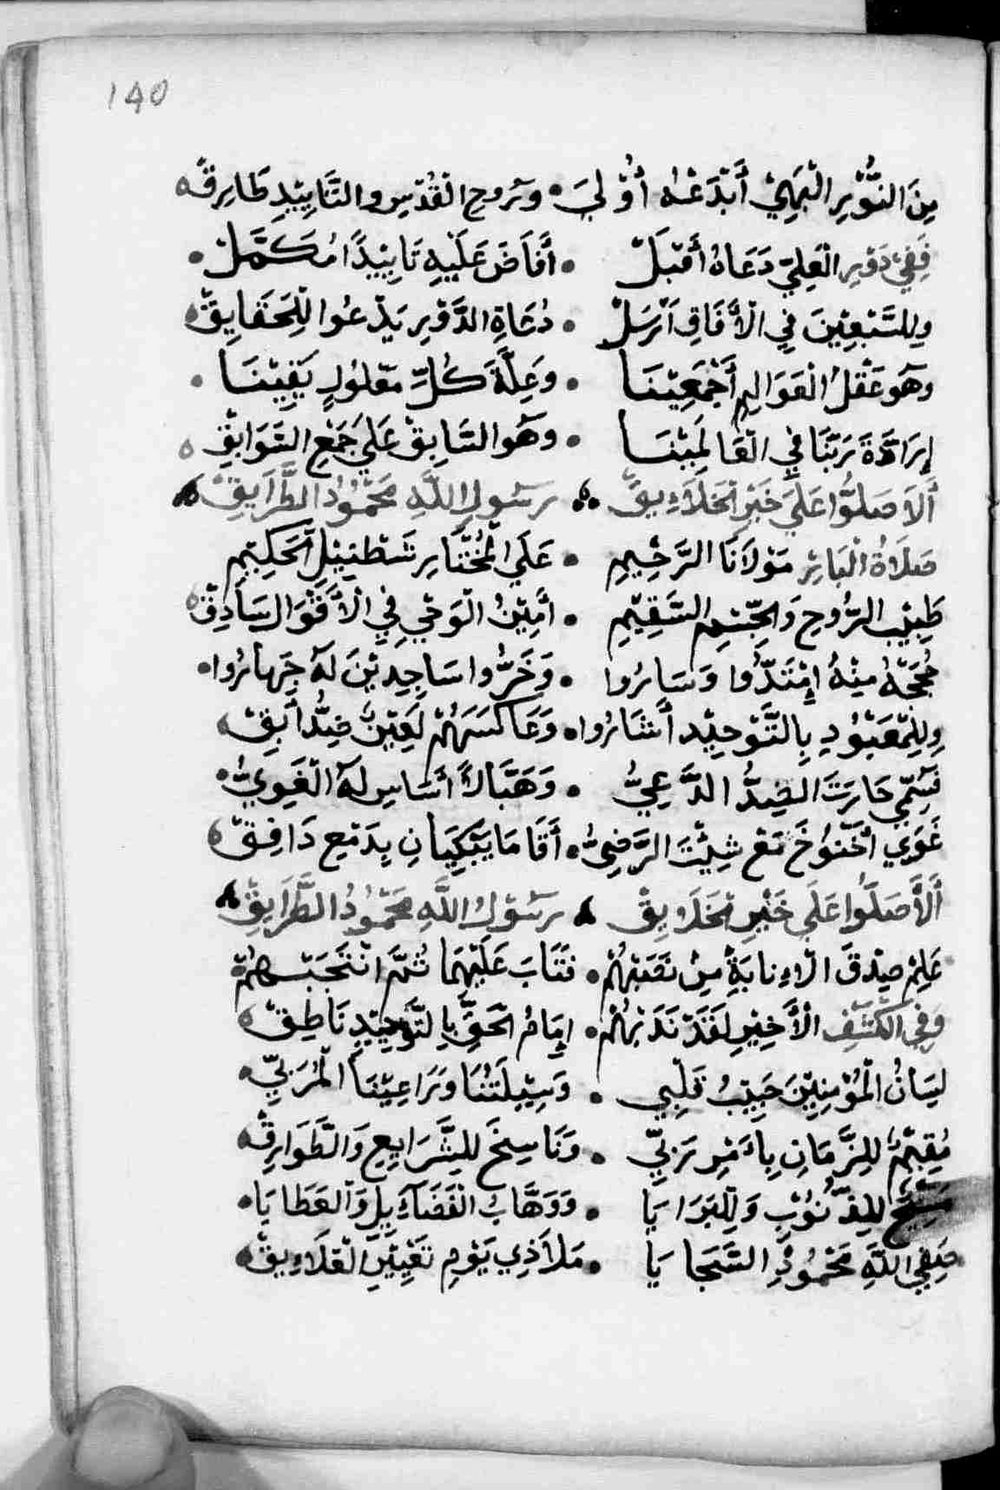 140
مِنَ النُّوْرِ الْبَهِيْ أَبْدَعْهُ أَوْ لَيَ • وَرُوحِ الْقُدْسِ والتَّايِيْدِ طَابِرِقْ
فَفِيْ دَوْرِ الْعَلِيّ دَعَاهُ أَقْبَلْ • أَفَاضَ عَلَيْهِ تَايِيْدًا مُكَمَّلْ •
وِللسَّبْعِيْنَ فِي الْأَفَاقِ اَرْسَلْ • دُعَاةِ الدَّوْرِ يَدْعُوا لِلْحَقَايِقْ
وهَو عَقْلُ الْعَوَالِمِ أَجْمَعِيْنَا • وَعِلَّةَ كُلِّ مَعْلُولٍ يَقِيْنَا •
إِرَادَةَ رَبِّنَا فِي الْعَالَمِيْنَا • وهَو السَّابِقْ عَلَيَ جَمْعِ السَّوَابِقْ
أَلاَ صَلُّوا عَلَيَ خَيْرِ الْخَلَاءِيقْ • رَسُولِ اللَّهِ مَحْمُوْدُ الطَّرَايِقْ
صَلَاةُ الْبَارِ مَوْلَانَا الرَّحِيْمِ • عَلَي الْمُخْتَارِ شَنْطِنِيْلِ الْحَكِيْمِ
طَبِيْبِ الرُّوحِ وَالْجِسْمِ السَّقِيْمِ • أَمِيْنُ الْوَحْيِ فِي الْأَقْوَالِ سَادِقْ
مُحِجَّهْ مِنْهُ إِمْتَدُّوا وَسَارُوا • وَخَرُّوا سَاجِدِيْنَ لَهْ جَهَارُوا •
وِللْمَعْبُوْدِ بِالتَّوْحِيْدِ أَشَارُوا • وَعَاكَسَهُمْ لَعِيْنٌ ضِدُّ أَبِقْ
تَسَمّي حَارِتَ الضِدُّ الدَّعِيُّ • وَهَبَّالاً أَسَاسِ لَهْ الْغَوِيُّ •
غَوَي أَخْنُوْخَ مَعْ شِيْتَ الرَّضِيُّ • أَقَامَا يَبْكِيَانِ بِدَمْعِ دَافِقْ
أَلاَّ صَلُّوا عَلَي خَيْرِ الْخَلَاِيِقْ رَسُوْلِ اللَّهِ مَحْمُوْدُ الطَّرَايِقْ
عَلِمْ صِدْقَ الْاِنابَةِ مِنْ نَعَمْهُمْ • فَتَابَ عَلَيْهِمَا ثُمَّ انْتَجَبْهُمْ
وَفِي الْكَشْفِ الْأَخِيْرِ لَقَدْ نَدَبْهُمْ • إِمَامُ الْحَقِّ بِالتَّوْحِيْدِ نَاطِقْ
لِسَانُ الْمُؤْمِنِيْنَ حَبِيْبُ قَلْبِي • وَسِيْلَتُنَا وَرَاعِيْنَا الْمُرَبِّي •
مُقِيْمٌ لِلزَّمَانِ بِاَمْرِ رَبِّي • وَنَاسِخْ لِلشَّرَايِعِ وَالطَّوَارِقْ
لِلذُّنُوْبِ وَلِلْبَرَايَا • وَوَهَّابُ الْفَضَآئِلِ وَالعَطَايَا •
صَفِي اللَّهِ مَحْمُوْدُ السَّجَايَا • مَلَاذِي يَوْمِ تَغْيِيْرِ الْعَلَايِقْ